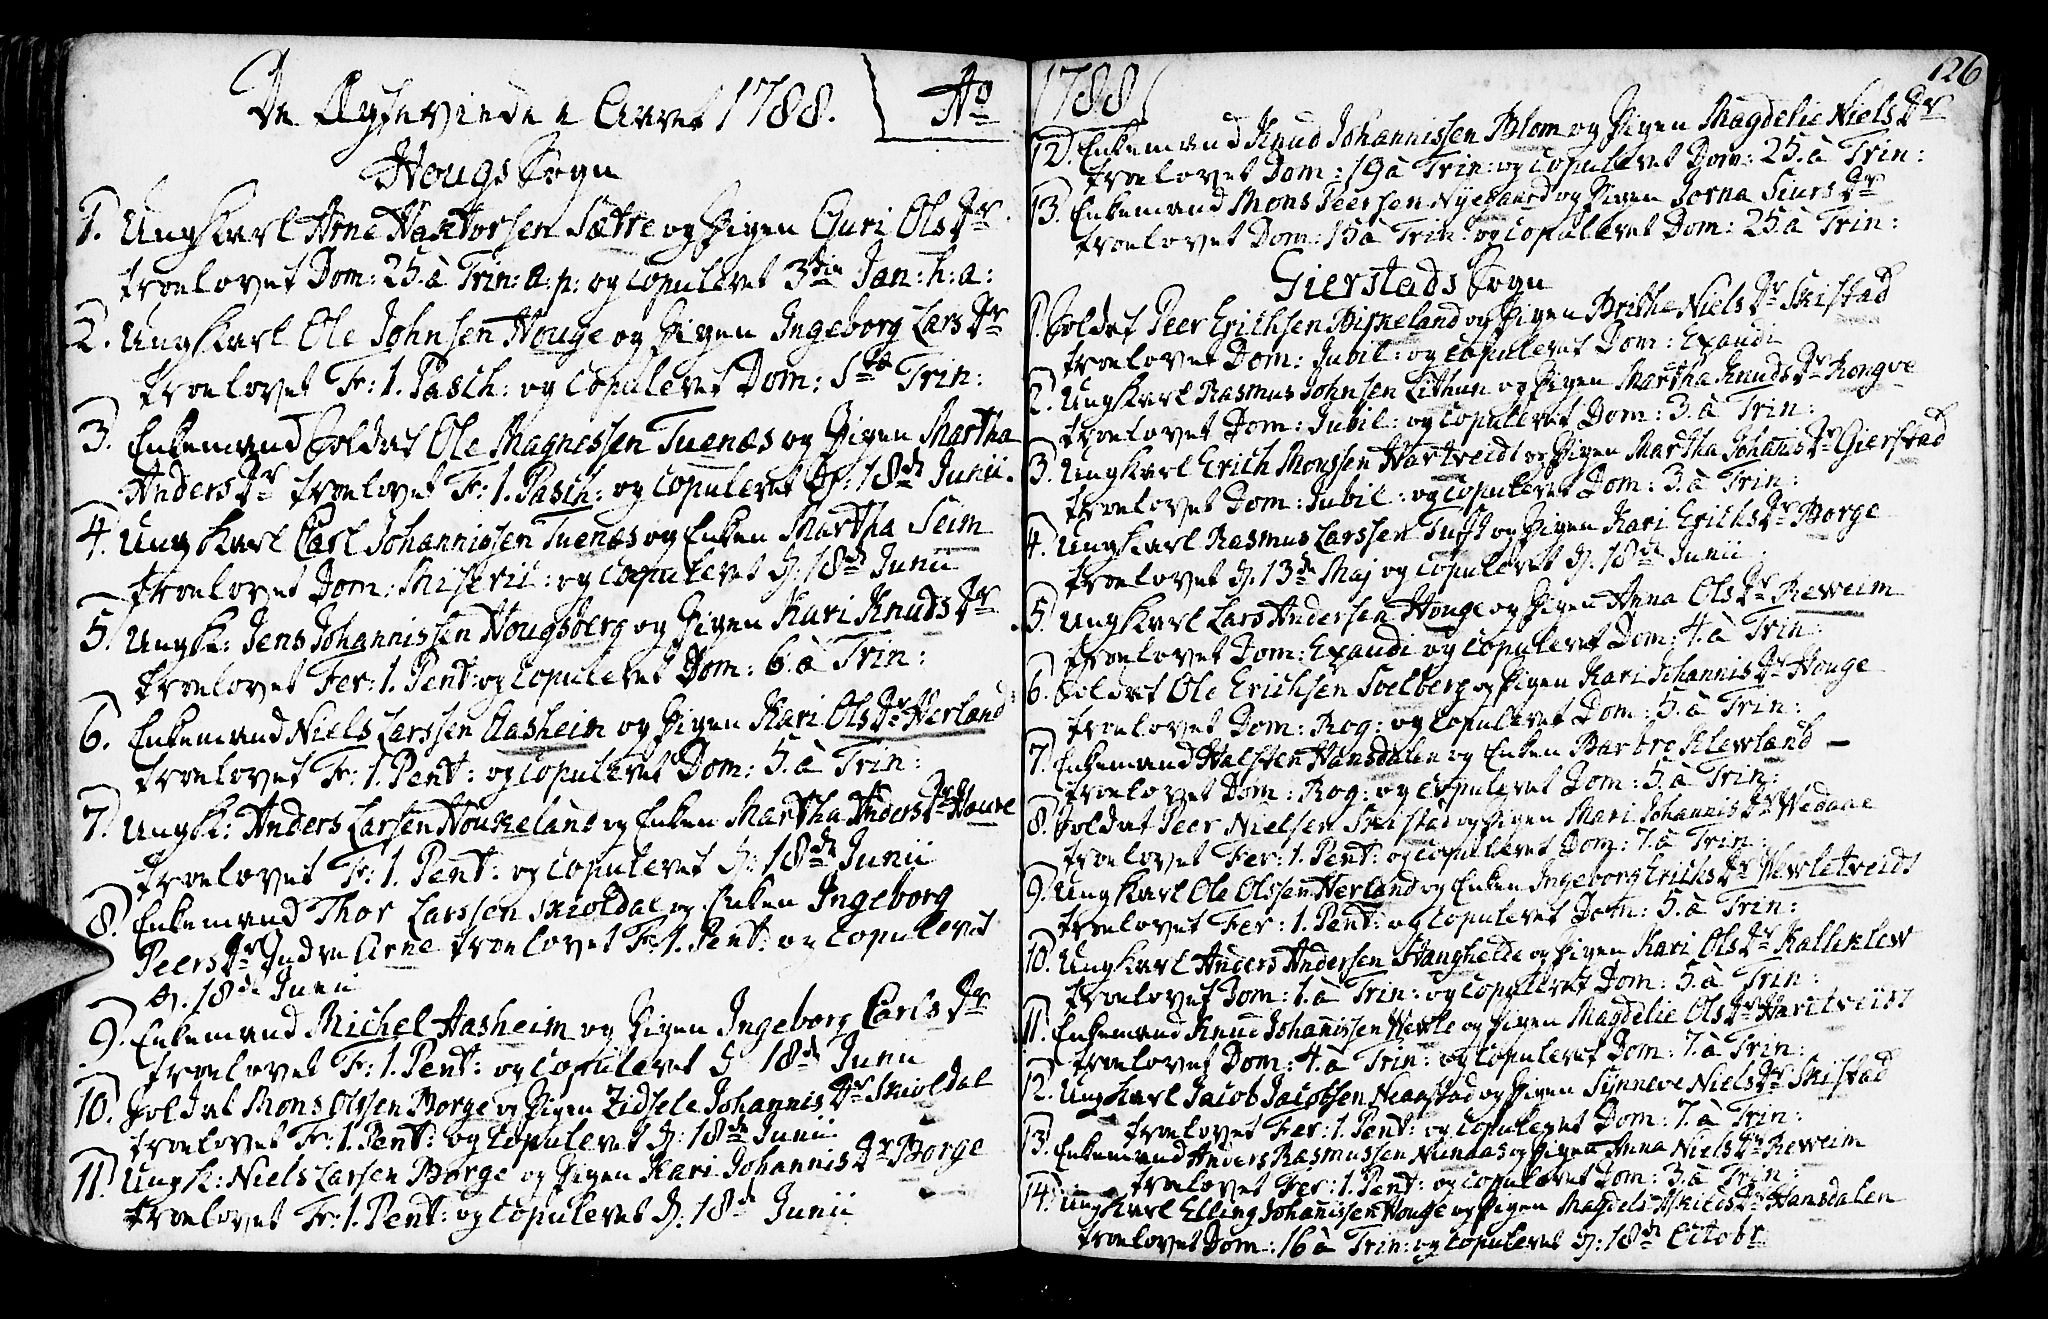 De Ægtevieede i Aaret 1788. Ao
Hougs Sogn
1. Ungkarl Arne Haktorsen Sætre og Pigen Guri Ols Dr
troelovet Dom: 25. à Trin: a. p: og copuleret 3die Jan: h: a:
2. Ungkarl Ole Johnsen Houge og Pigen Ingeborg Lars Dr
troelovet Fr: 1. Pasch: og copuleret Dom: Trin:
3. Enkemand Soldat Ole Magnessen Tuenæs og Pigen Martha
Anders Dr troelovet F: 1. Pasch: og copuleret d: 18de Junii.
4. Ungkarl Carl Johannissen Tuenæs og Enken Martha Seim
troelovet Dom: Miserii: og copuleret d. 18de Junii
5. Ungk: Jens Johannissen Hougsberg og Pigen Kari Knuds Dr
troelovet Fer: 1. Pent: og copuleret Dom: 6. à Trin:
6. Enkemand Niels Larssen Aasheim og Pigen Kari Ols Dr Herland
troelovet Fr: 1. Pent: og copuleret Dom: 5. à Trin:
7. Ungk: Anders Larsen Houkeland og Enken Martha Anders Dr Houve
troelovet F: 1. Pent: og copuleret d: 18de Junii
8. Enkemand Thor Larssen Skioldal og Enken Ingeborg
Peers Dr Indre Arne troelovet F: 1. Pent: og copuleret
d. 18de Junii
9. Enkemand Michel Aasheim og Pigen Ingeborg Carls Dr
troelovet F: 1. Pent: og copuleret d 18de Junii
10. Soldat Mons Olssen Borge og Pigen Zidsele Johannis Dr Skioldal
troelovet Fr: 1. Pent: og copuleret d: 18de Junii
11. Ungk: Niels Larsen Borge og Pigen Kari Johannis Dr Borge
troelovet Fr: 1. Pent: og copuleret d. 18de Junii
1788
126
12. Enkemand Knud Johannissen Blom og Pigen Magdelie Niels Dr
troelovet Dom: 19 à Trin: og copuleret Dom: 25. à Trin:
13. Enkemand Mons Peersen Nyegaard og Pigen Jorna Siurs Dr
troelovet Dom: 15 à Trin: og copuleret Dom: 25. à Trin:
Gierstads Sogn
1. Soldat Peer Erichsen Birkeland og Pigen Brithe Niels Dr Skistad
troelovet Dom: Jubil: og copuleret Dom: Exaudi
2. Ungkarl Rasmus Johnsen Lithun og Pigen Martha Knuds Dr Rongve
troelovet Dom: Jubil: og copuleret Dom: 3. à Trin:
3. Ungkarl Erich Monssen Hartveidt og Pigen Martha Johanis Dr Gierstad
troelovet Dom: Jubil: og copuleret Dom: 3. à Trin:
4. Ungkarl Rasmus Larssen Tuft og Pigen Kari Erichs Dr Borge
troelovet d. 13de Maj og copuleret d. 18de Junii
5. Ungkarl Lars Andersen Houge og Pigen Anna Ols Dr Reweim
troelovet Dom: Exaudi og copuleret Dom: 4. à Trin:
6. Soldat Ole Erichsen Soelberg og Pigen Kari Johannis Dr Houge
troelovet Dom: Rog: og copuleret Dom: 5. à Trin:
7. Enkemand Halsten Hansdalen og Enken Barbro Klewland —
troelovet Dom: Rog: og copuleret Dom: 5. à Trin:
8. Soldat Peer Nielsen Skistad og Pigen Mari Johannis Dr Wedane
troelovet Fer: 1. Pent: og copuleret Dom: 7. à Trin:
9. Ungkarl Ole Olssen Herland og Enken Ingeborg Erichs Dr Hewletveidt
troelovet Fer: 1. Pent: og copuleret Dom: 5. à Trin:
10. Ungkarl Anders Andersen Hanghelde og Pigen Kari Ols Dr Kalleklew
troelovet Dom: 1. à Trin: og copuleret Dom: 5. à Trin:
11. Enkemand Knud Johanissen Hewle og Pigen Magdelie Ols Dr Hartveidt
troelovet Dom: 4. à Trin: og copuleret Dom: 7. à Trin:
12. Ungkarl Jacob Jacobsen Neagstad og Pigen Synneve Niels Dr Skistad
troelovet Fer: 1. Pent: og copuleret Dom: 7. à Trin:
13. Enkemand Anders Rasmussen Nundas og Pigen Anna Niels Dr Reweim
troelovet Fer: 1. Pent: og copuleret Dom: 3. à Trin:
14. Ungkarl Elling Johanissen Houge og Pigen Magdeli Askilds Dr Hansdalen
troelovet Dom: 16 à Trin: og copuleret d: 18de Octobr